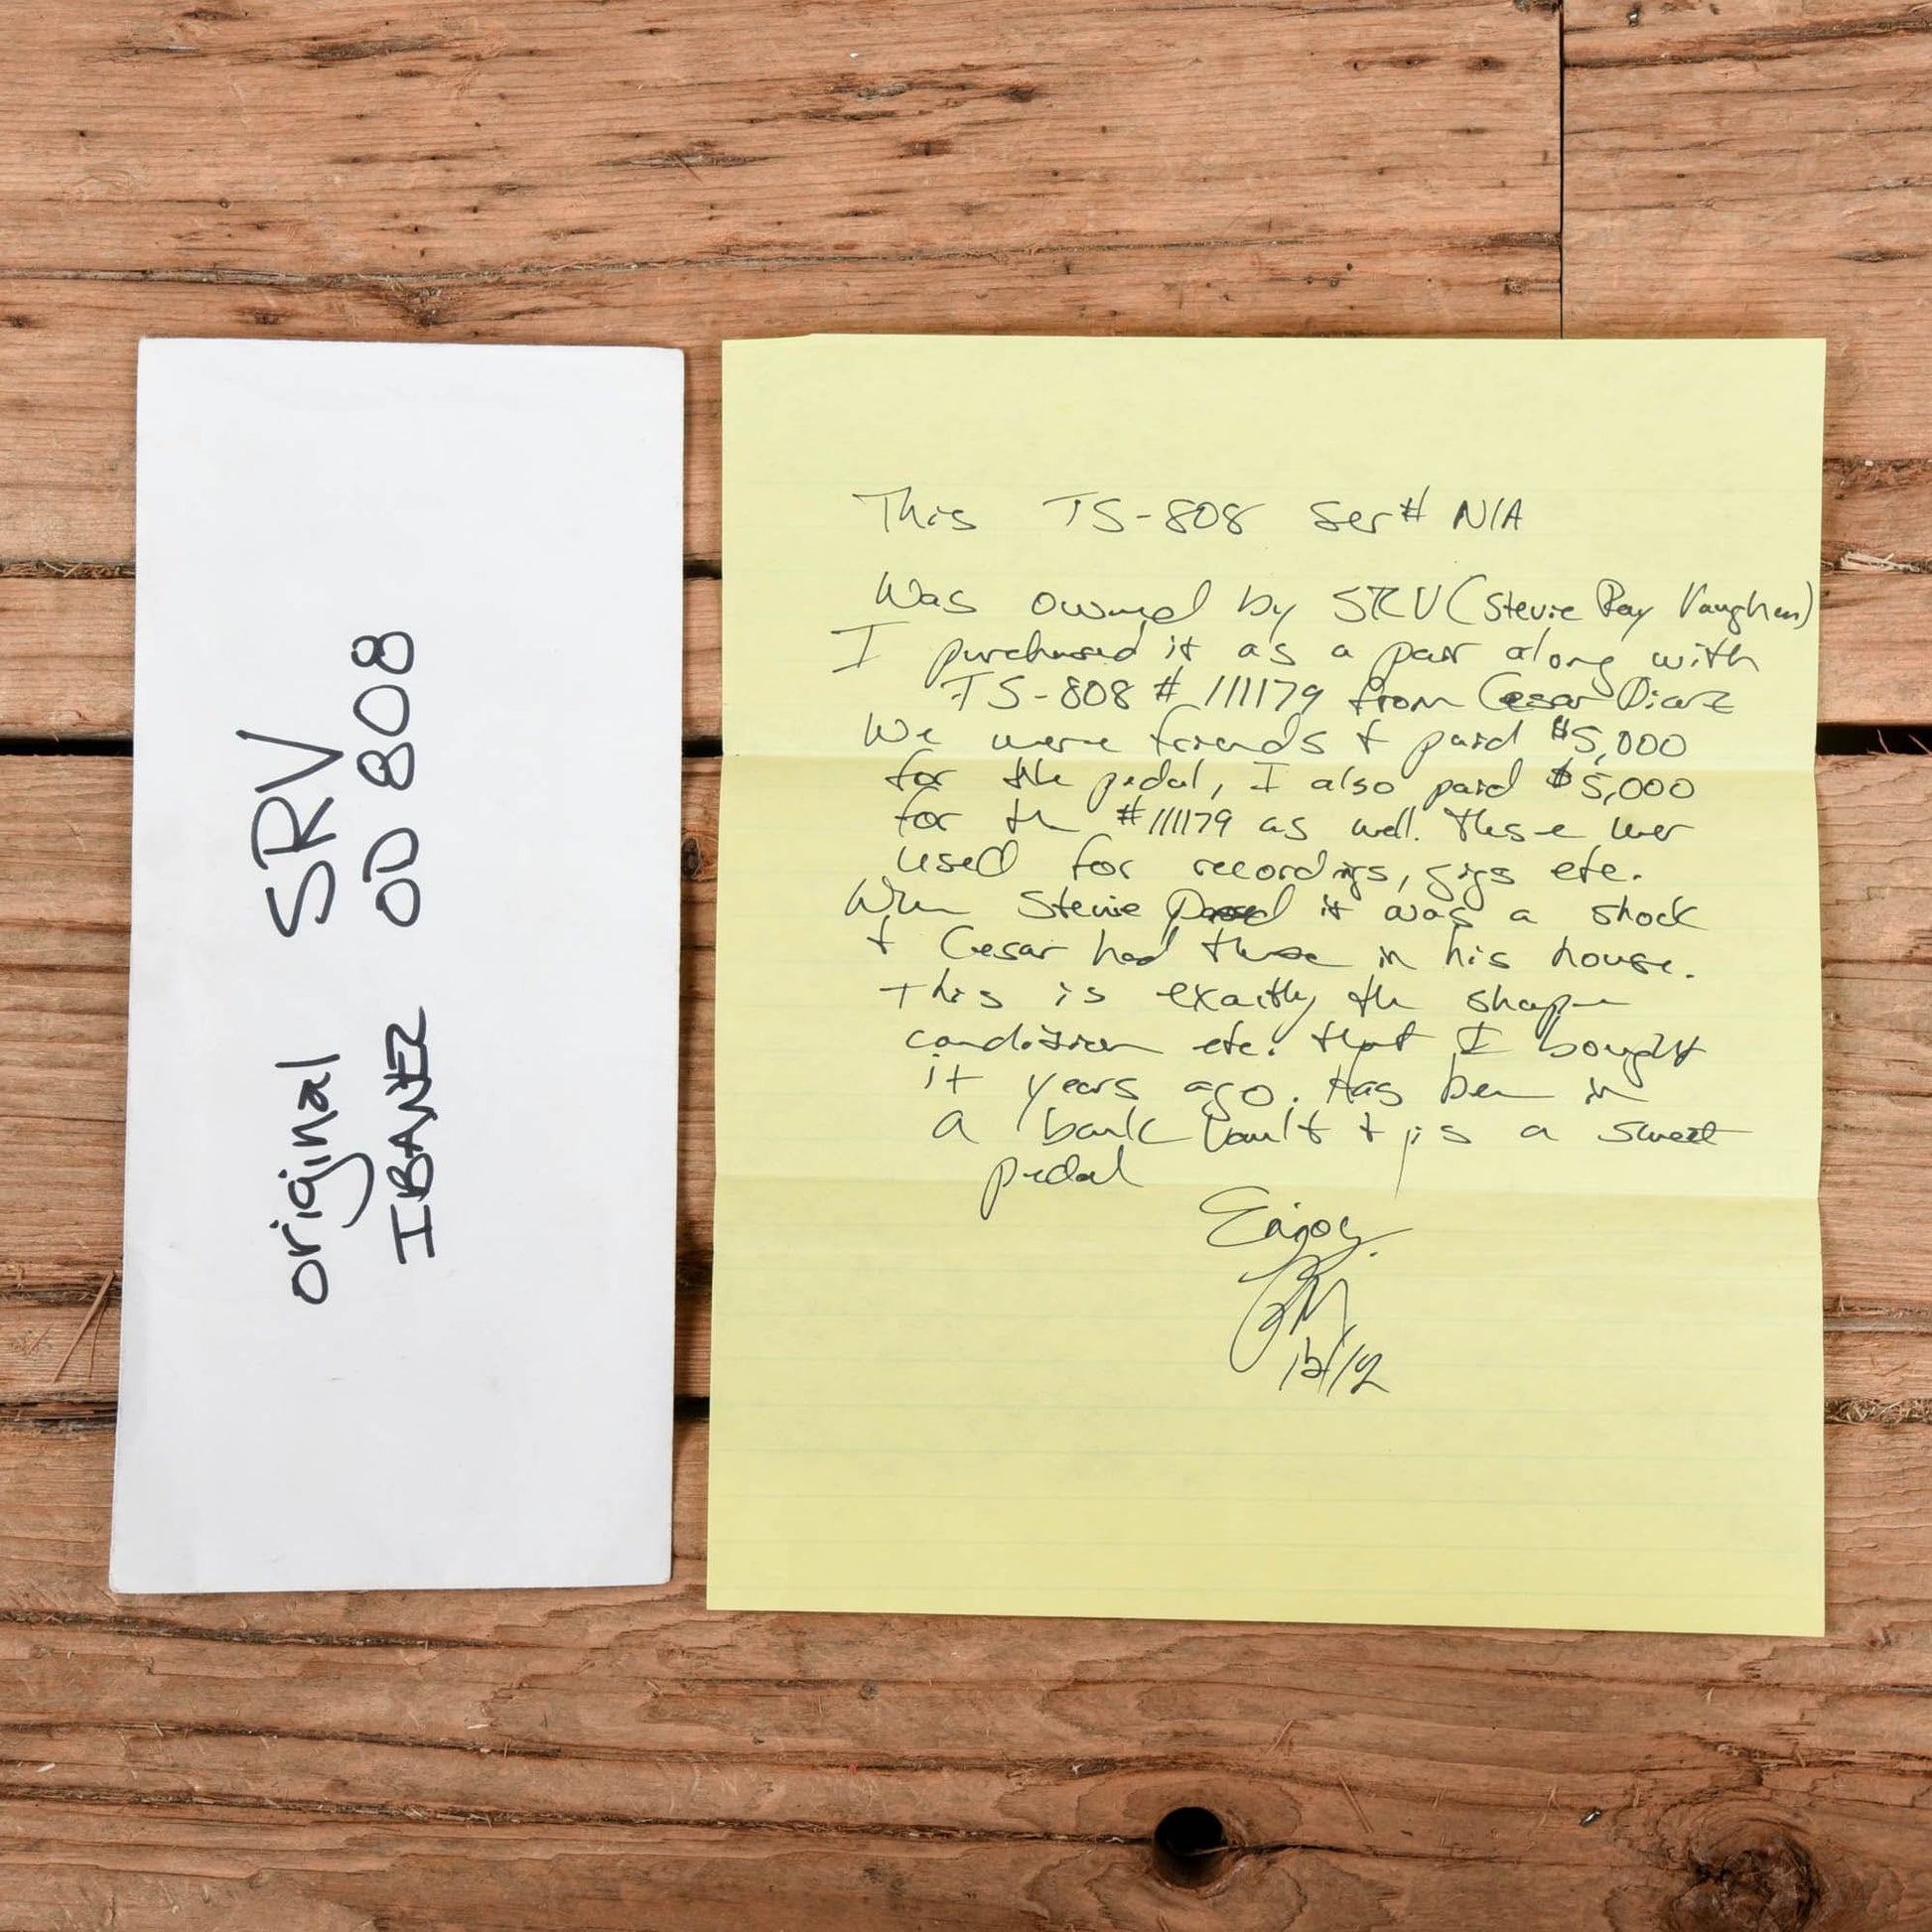 original SRV
IBANEZ OD 808
This TS-808 Ser# N/A
Was owned by SRV (Stevie Ray Vaughan)
I purchased it as a pair along with
TS-808 # 111179 from Cesar Diaz
We were friends + paid $5,000
for the pedal, I also paid $5,000
for the #111179 as well. These wer
used for recordings, gigs etc.
When Stevie Passed it was a shock
+ Cesar had these in his house.
This is exactly the shape
condition etc. that I bought
it years ago. Has been in
a bank vault + is a sweet
pedal
Enjoy.
12/12